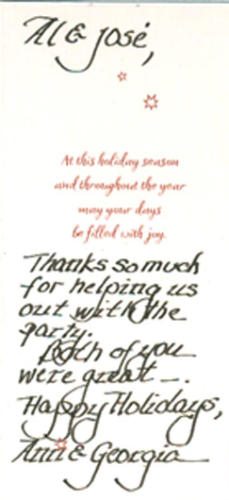 Al & José,
At this holiday season
and throughout the year
may your days
be filled with joy.
Thanks so much
for helping us
out with the
party.
Both of you
were great —.
Happy Holidays,
Ann & Georgia